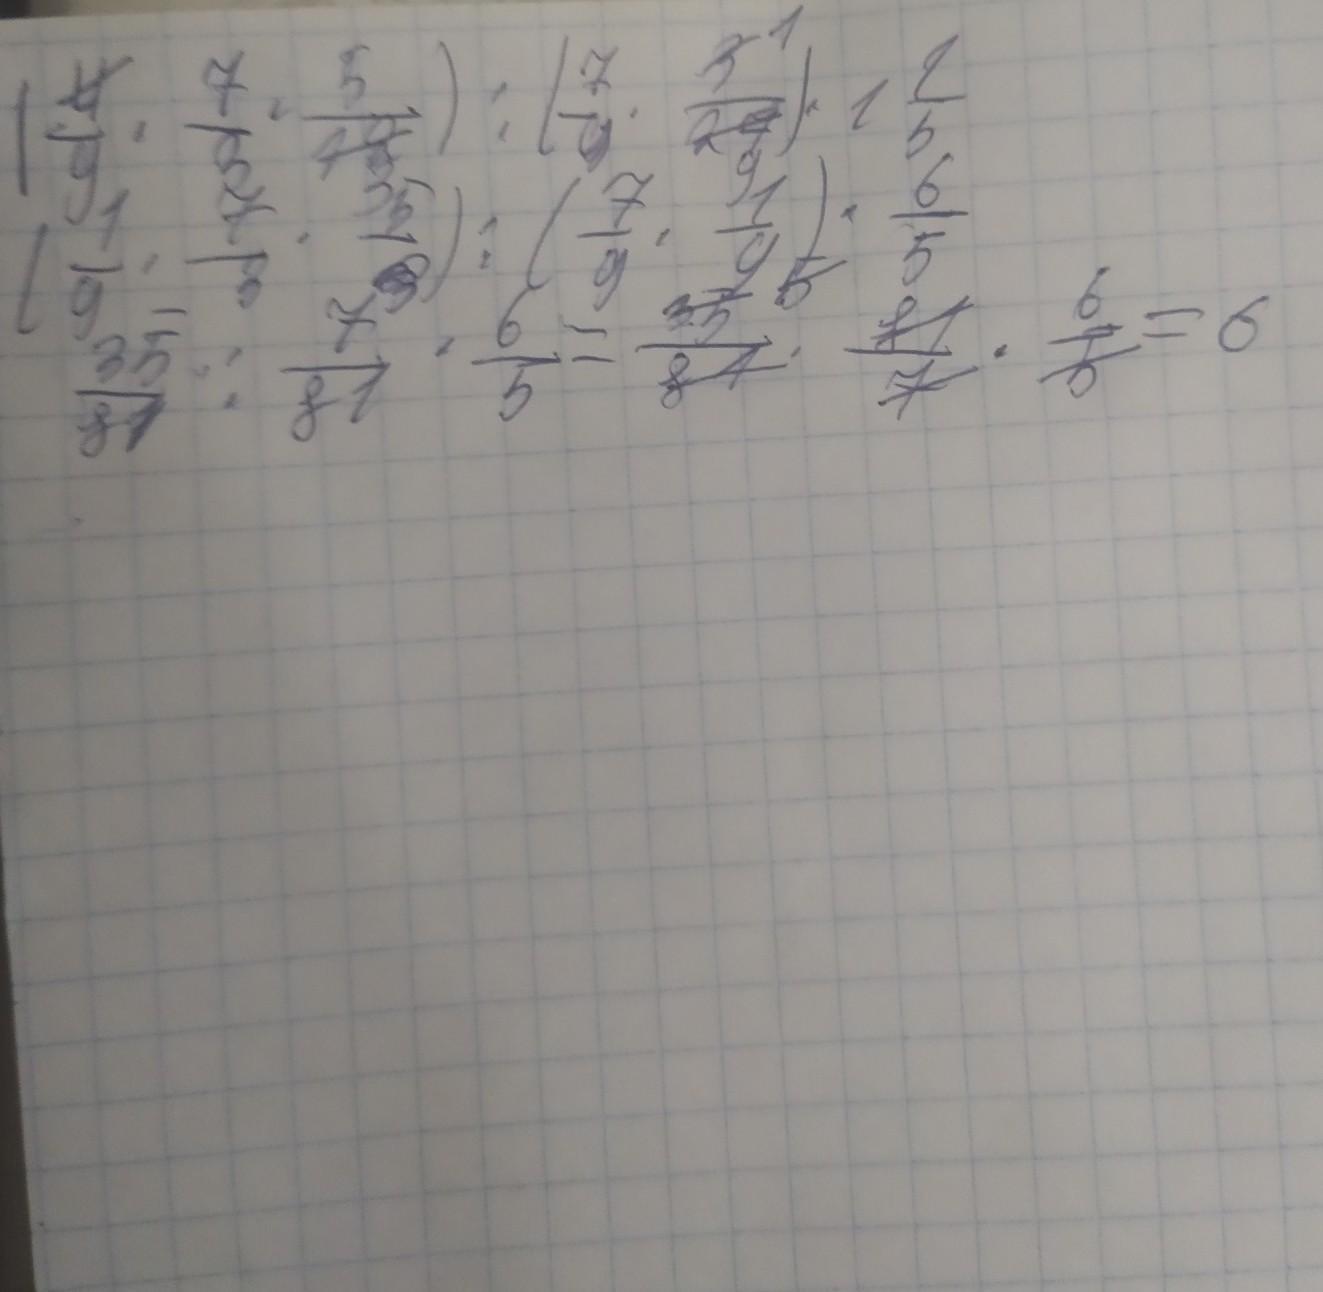 (4/9 · 7/3 · 5/12 3) : (7/9 · 3/27 1 9) · 1 1/5
(1/9 · 7/3 · 5/3) : (7/9 · 1/9) · 6/5 =
35/81 : 7/81 · 6/5 = 35/81 5 · 81/7 · 6/5 = 6